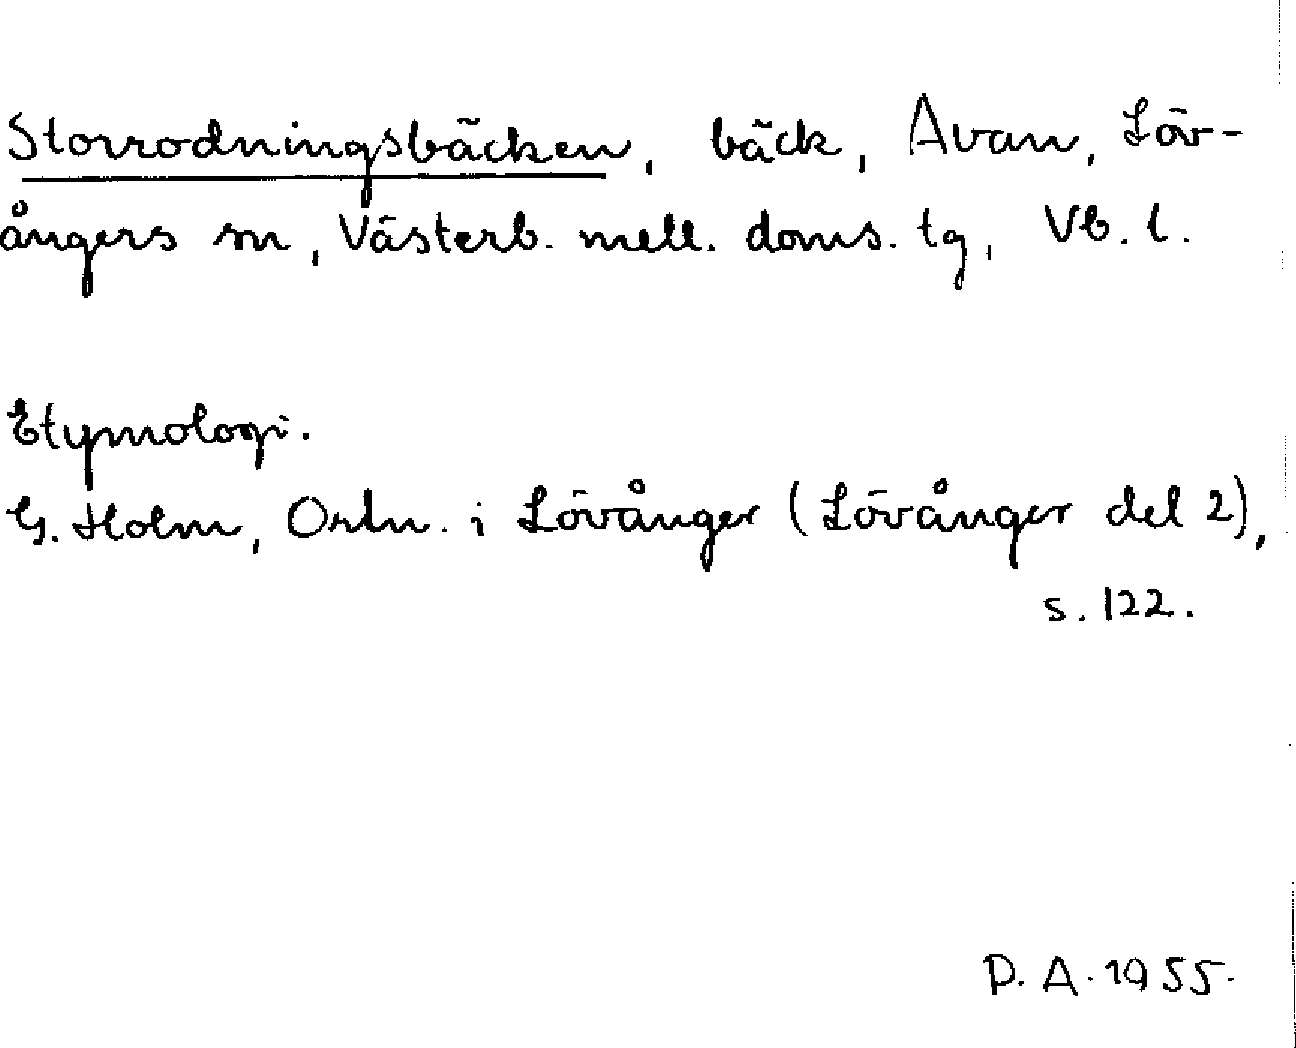 Storrodningsbäcken, bäck, Avan, Löv-
ångers sn, Västerb. mell. doms. tg, Vb. l.
Etymologi.
G. Holm, Ortn. i Lövånger (Lövånger del 2),
s. 122.
D. A. 1955.